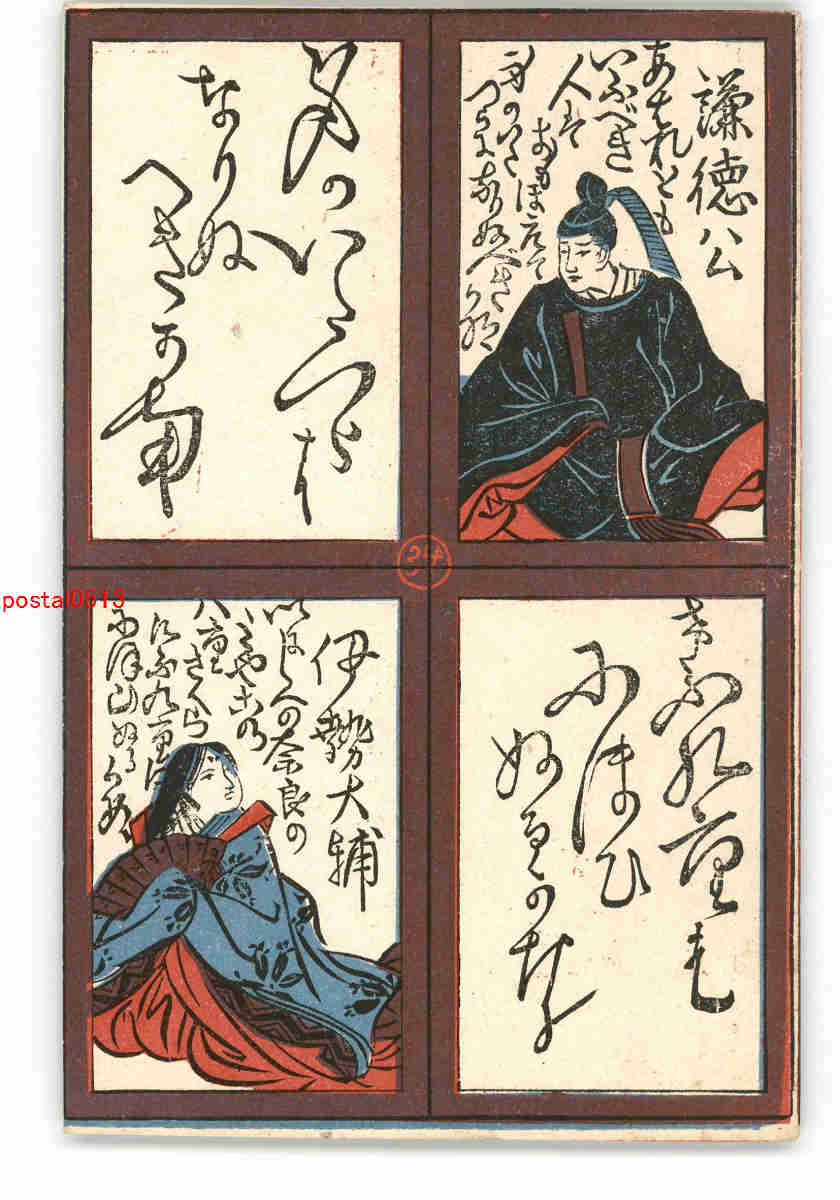 謙徳公
あはれとも
いふべき
人は
おもほえて
身のいた
つらになりぬべき
かな
身のいたつらに
なりぬ
へきかな
けふ九重に
にほひ
ぬるかな
伊勢大輔
いにしへの奈良の
みやこの
八重さくら
けふ九重に
にほひぬる
かな
24
postal0513